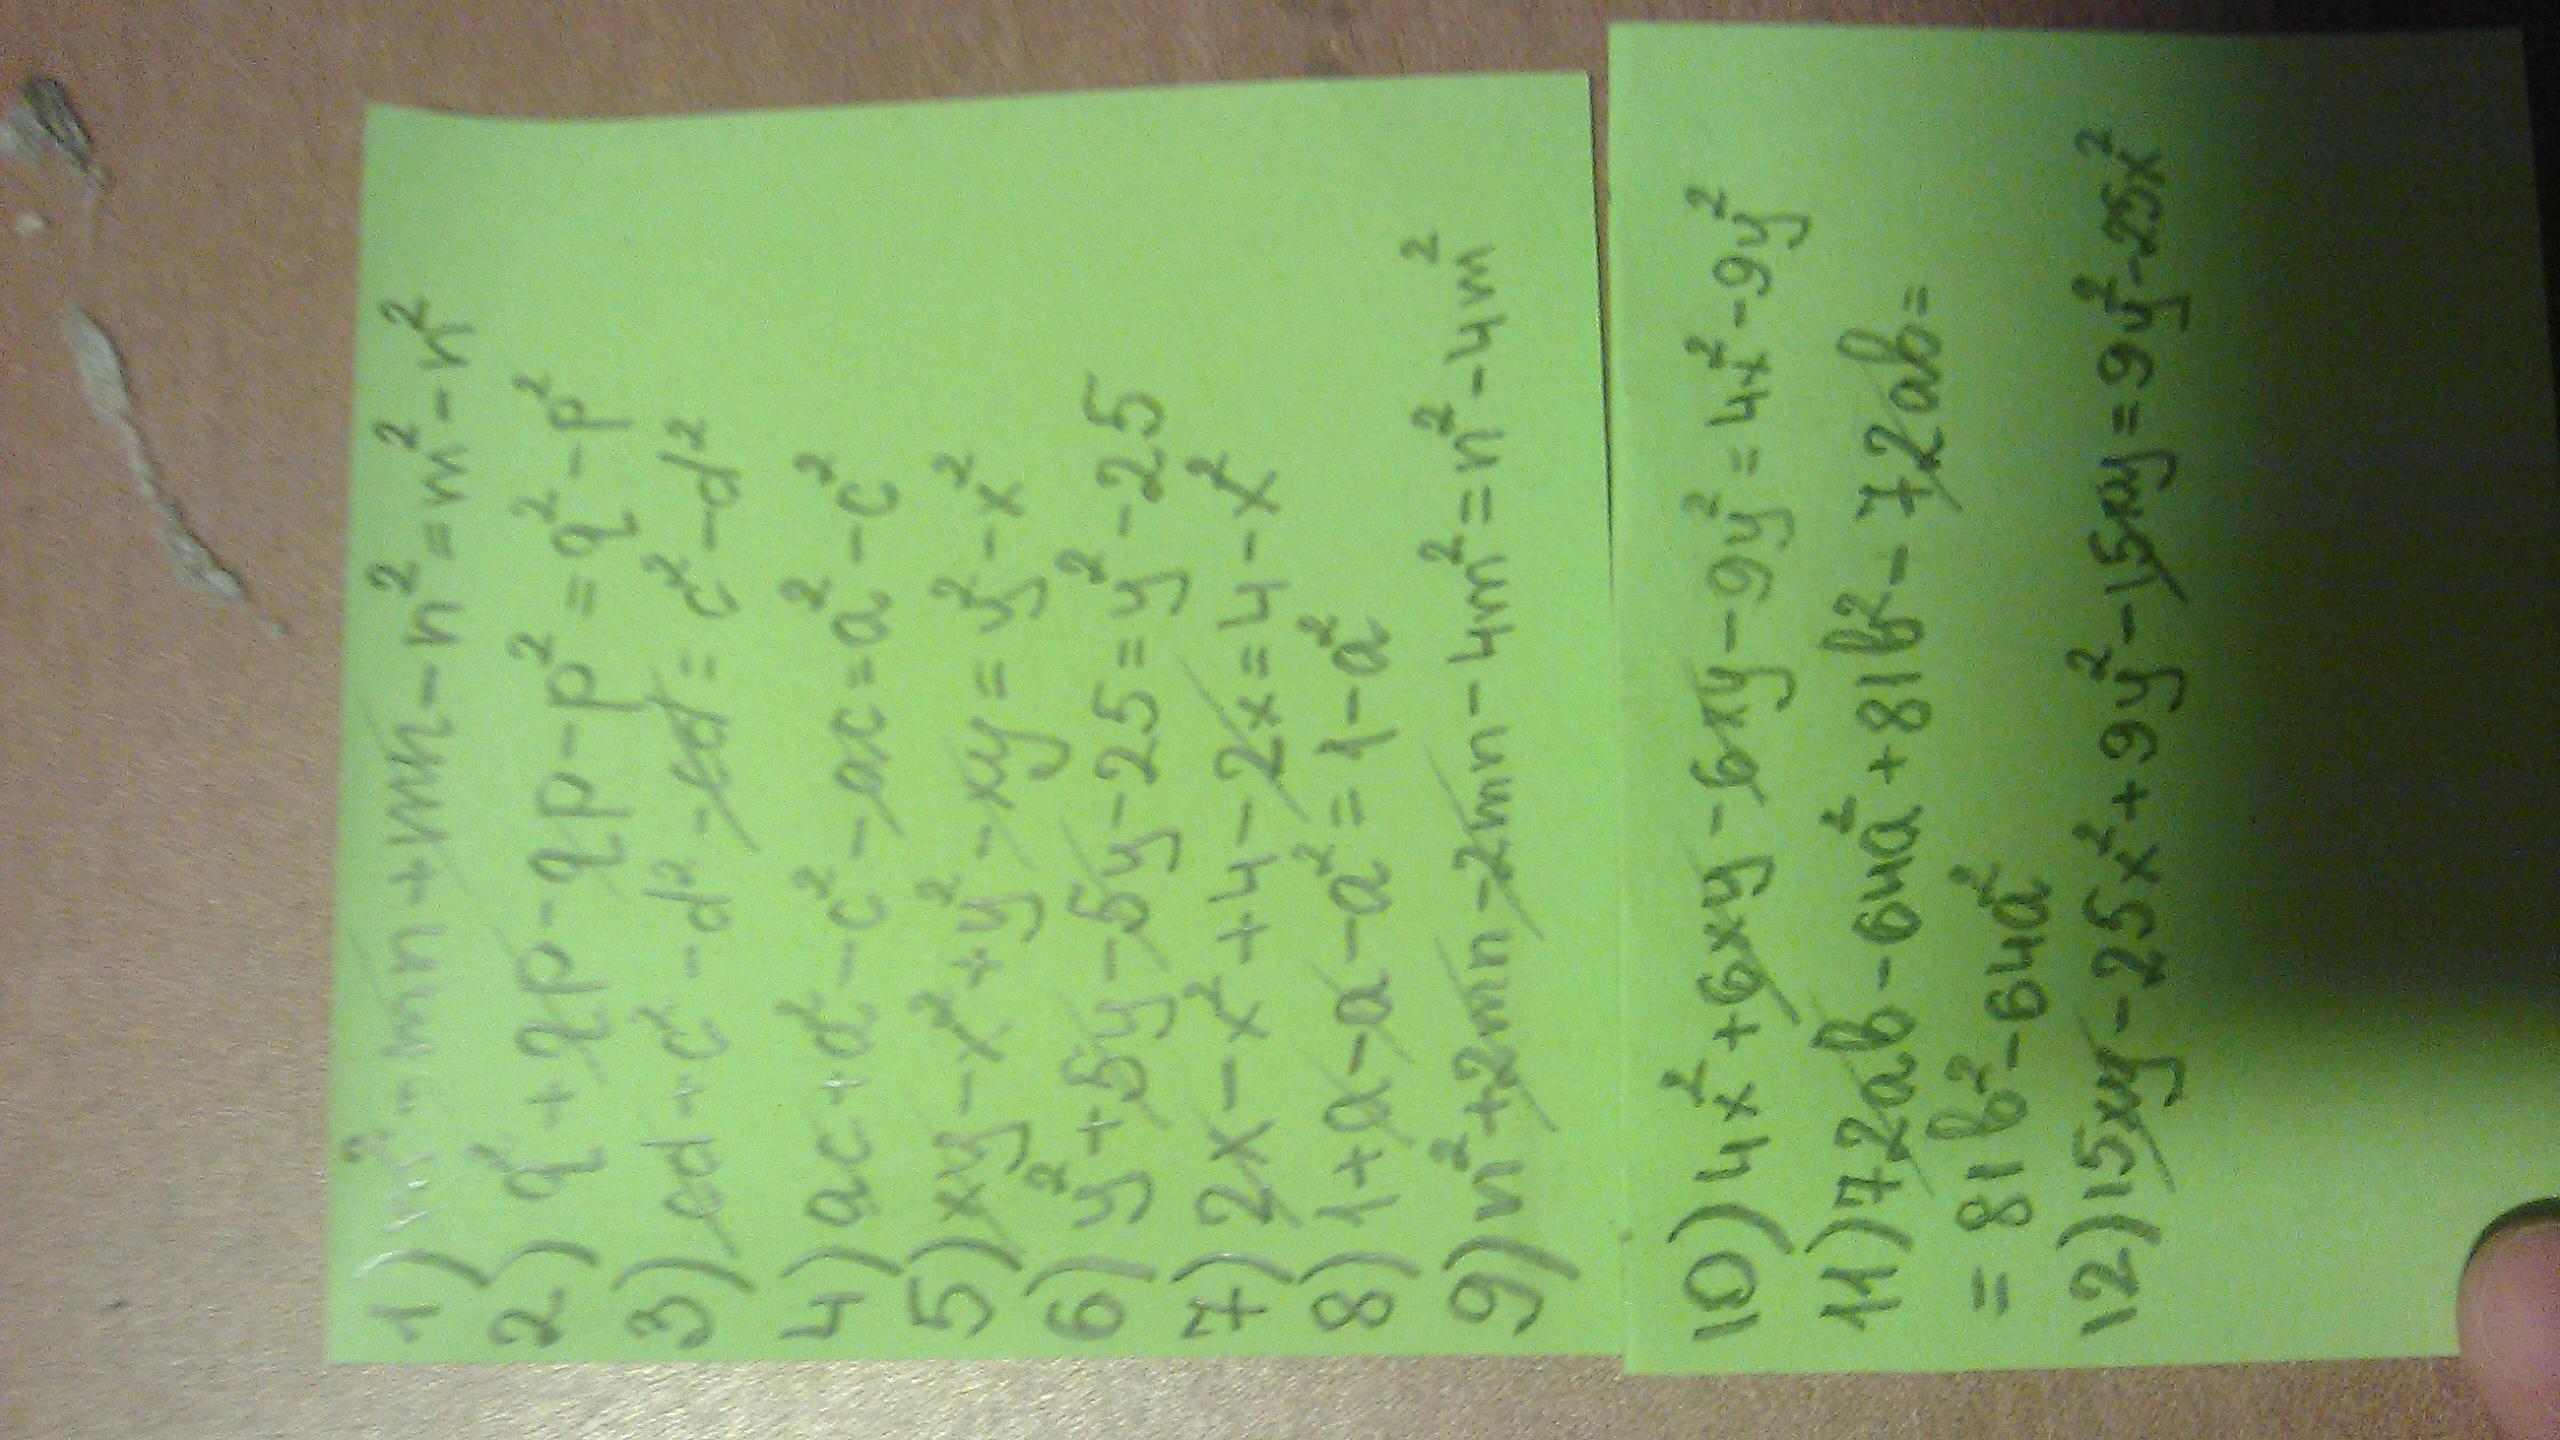 1) m² - mn + mn - n² = m² - n²
2) q² + qp - qp - p² = q² - p²
3) cd + c² - d² - cd = c² - d²
4) ac + a² - c² - ac = a² - c²
5) xy - x² + y² - xy = y² - x²
6) y² + 5y - 5y - 25 = y² - 25
7) 2x - x² + 4 - 2x = 4 - x²
8) 1 + a - a - a² = 1 - a²
9) n² + 2mn - 2mn - 4m² = n² - 4m²
10) 4x² + 6xy - 6xy - 9y² = 4x² - 9y²
11) 72ab - 64a² + 81b² - 72ab =
= 81b² - 64a²
12) 15xy - 25x² + 9y² - 15xy = 9y² - 25x²